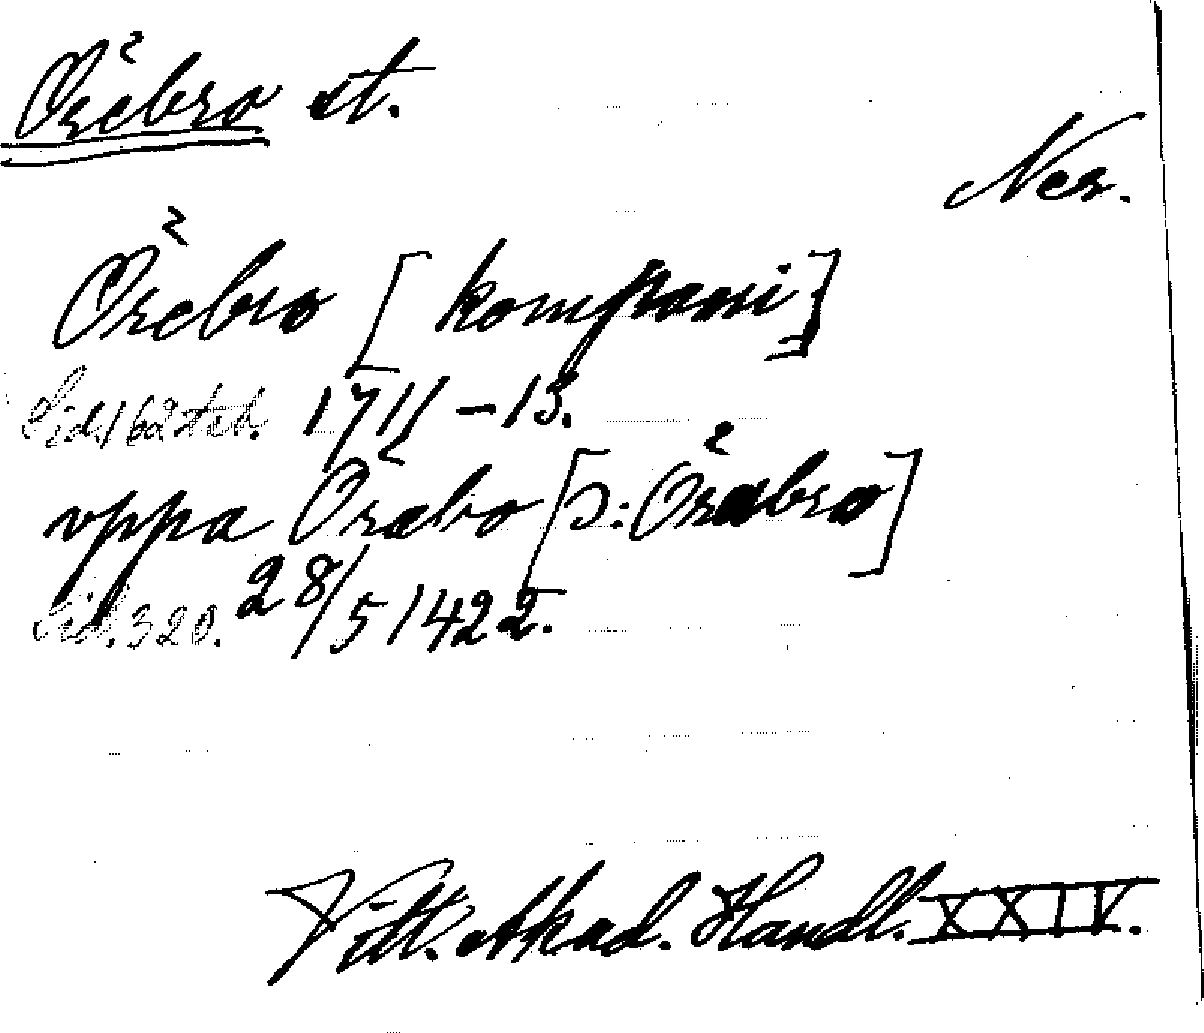 Örebro st.
Ner.
Örebro [kompani]
Sid. 162 1711–13.
vppa Öräbo [ɔ: Öräbro]
Sid. 320. 28/5 1422.
Vitt. Akad. Handl. XXIV.